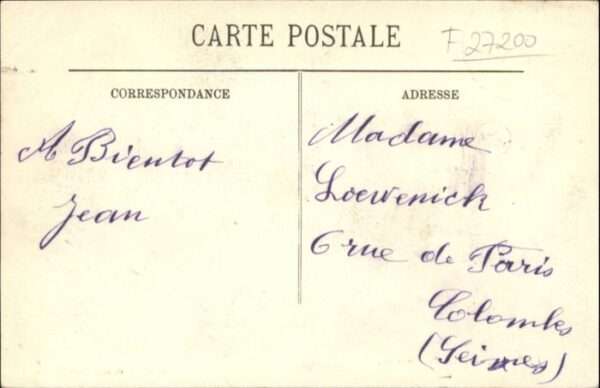 CARTE POSTALE
F 27200
CORRESPONDANCE
A Bientot
Jean
ADRESSE
Madame
Loewenick
6 rue de Paris
Colombes
(Seines)